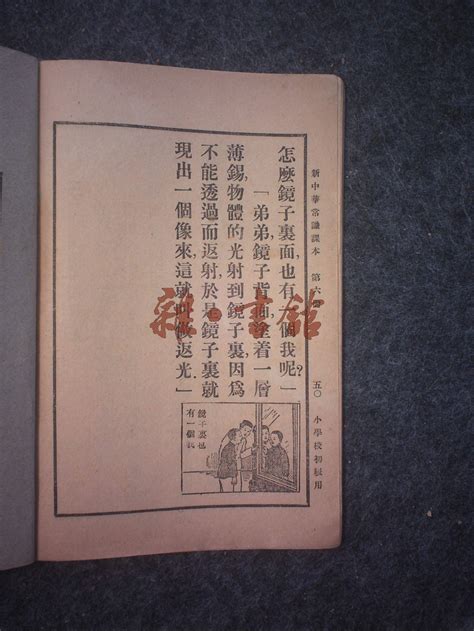 新中華常識課本 第六冊 五〇 小學校初級用
怎麼鏡子裏面,也有一個我呢?」
「弟弟,鏡子背面塗着一層
薄錫,物體的光射到鏡子裏,因爲
不能透過而返射,於是鏡子裏就
現出一個像來,這就叫做返光。」
鏡子裏也
有一個我